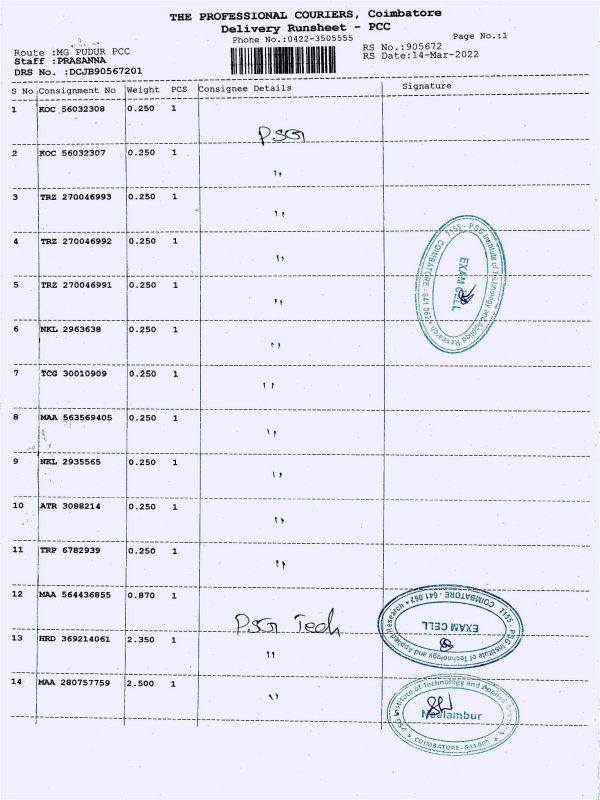 THE PROFESSIONAL COURIERS, Coimbatore
Delivery Runsheet - PCC
Phone No.:0422-3505555
Page No.:1
Route :MG PUDUR PCC
RS No.:905672
Staff :PRASANNA
RS Date:14-Mar-2022
DRS No. :DCJB90567201
S No Consignment No Weight PCS Consignee Details Signature
1 KOC 56032308 0.250 1 PSG
2 KOC 56032307 0.250 1 ,,
3 TRZ 270046993 0.250 1 ,,
4 TRZ 270046992 0.250 1 ,,
7155 - PSG Institute of Technology and Applied Research
COIMBATORE - 641 062
EXAM CELL
5 TRZ 270046991 0.250 1 ,,
6 NKL 2963638 0.250 1 ,,
7 TCG 30010909 0.250 1 ,,
8 MAA 563569405 0.250 1 ,,
9 NKL 2935565 0.250 1 ,,
10 ATR 3088214 0.250 1 ,,
11 TRP 6782939 0.250 1 ,,
12 MAA 564436855 0.870 1 PSG Tech
7155 - PSG Institute of Technology and Applied Research
COIMBATORE - 641 062
EXAM CELL
13 HRD 369214061 2.350 1 ,,
14 MAA 280757759 2.500 1 ,,
PSG Institute of Technology and Applied Research
Neelambur
COIMBATORE - 641 062